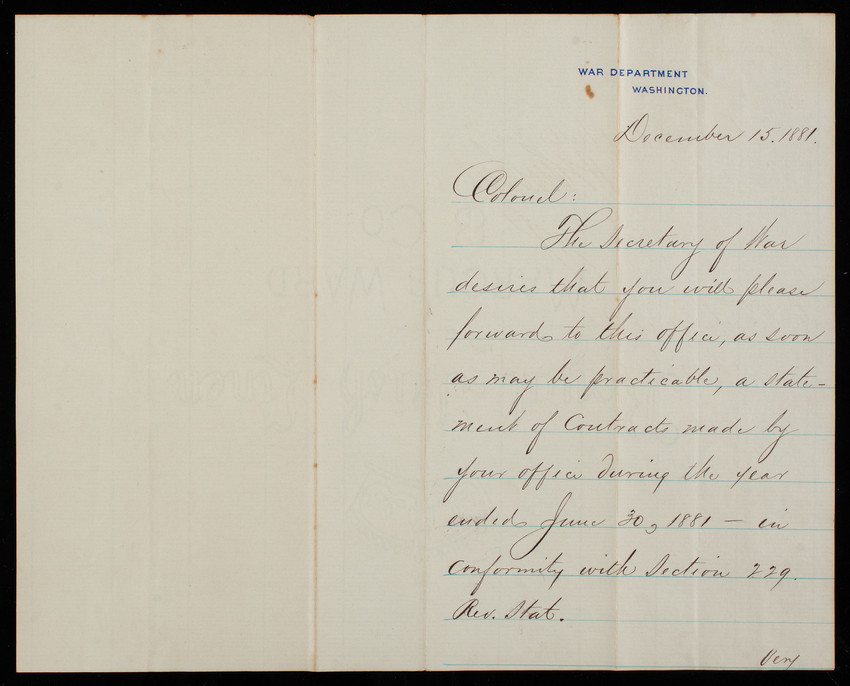 WAR DEPARTMENT
WASHINGTON.
December 15. 1881.
Colonel:
The Secretary of War
desires that you will please
forward to this office, as soon
as may be practicable, a state-
ment of Contracts made by
your office during the year
ended June 30, 1881 — in
conformity with Section 229.
Rev. Stat.
Very